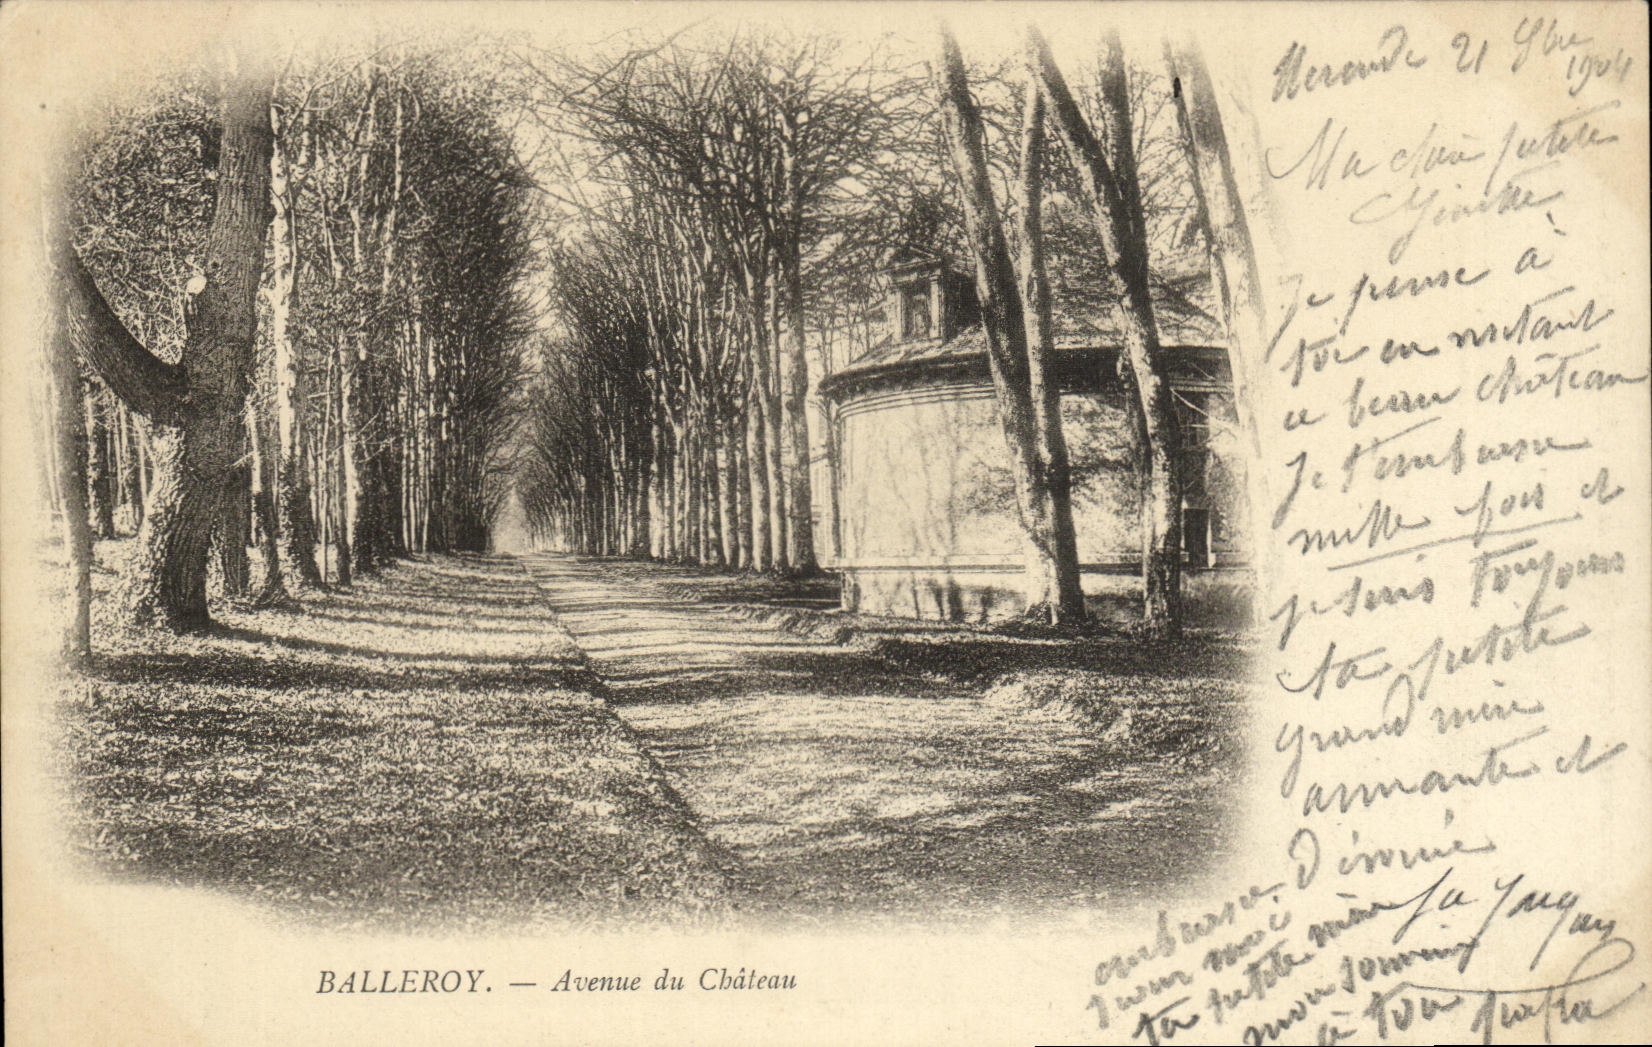 BALLEROY. — Avenue du Château
21 1904
Ma chère petite
Ginette
Je pense à
toi en visitant
ce beau château
Je t'embrasse
mille fois et
je suis toujours
ta petite
grand mère
aimante et
embrasse
pour moi
ta petite mère
mon souvenir
à ton papa